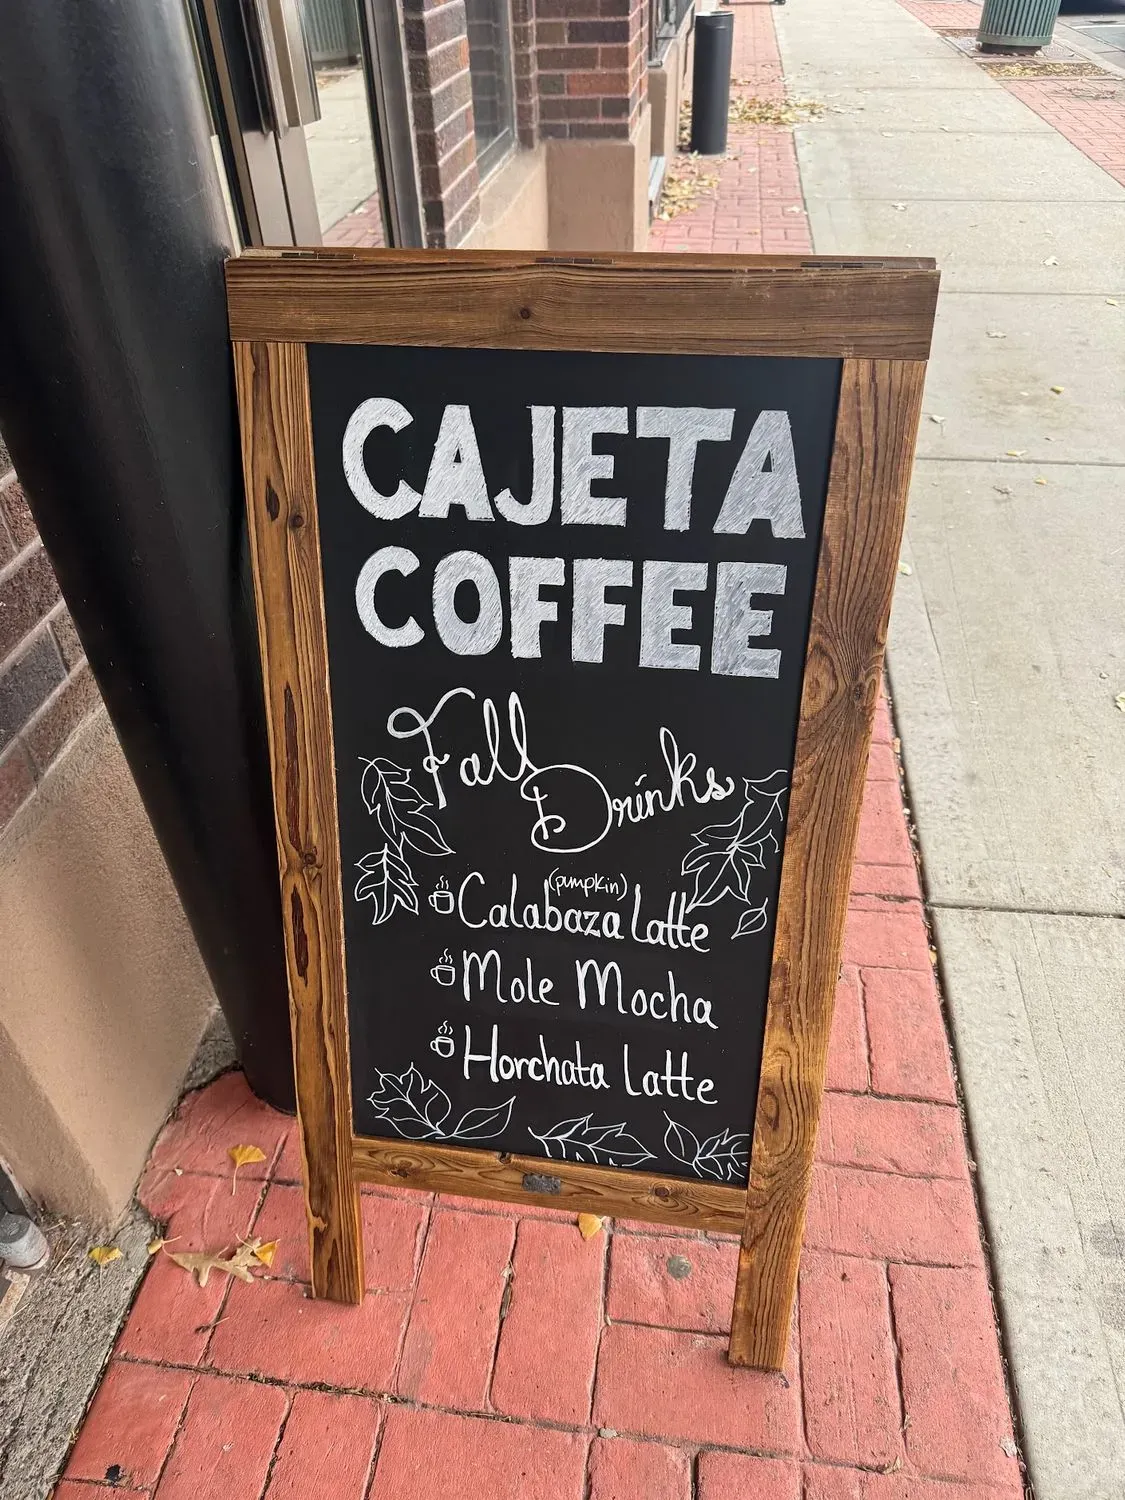 CAJETA
COFFEE
Fall
Drinks
(pumpkin)
Calabaza Latte
Mole Mocha
Horchata Latte